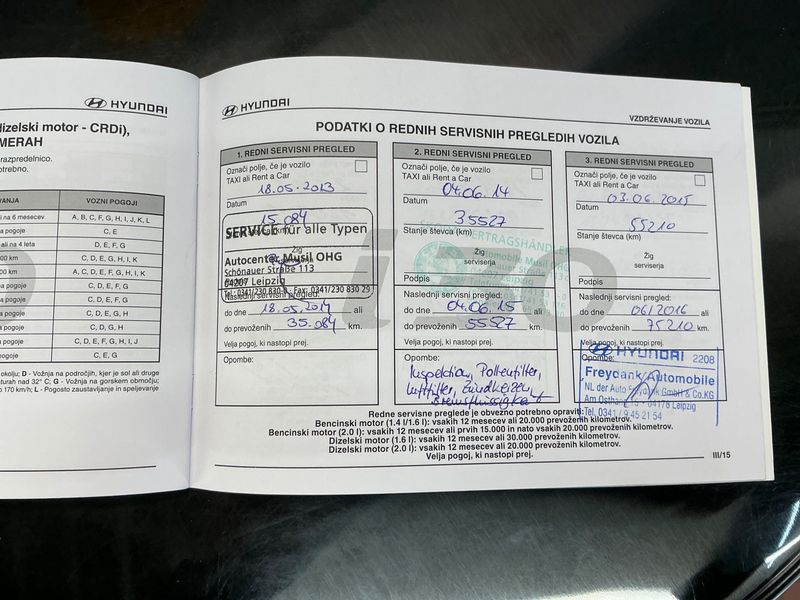 HYUNDAI
dizelski motor - CRDi),
MERAH
razpredelnico.
otrebno.
VANJA VOZNI POGOJI
li na 6 mesecev A, B, C, F, G, H, I, J, K, L
a pogoje C, E
ali na 4 leta D, E, F, G
000 km C, D, E, G, H, I, K
000 km A, C, D, E, F, G, H, I, K
a pogoje C, D, E, F, G
a pogoje C, D, E, F, G
a pogoje C, D, E, G, H
a pogoje C, D, G, H
a pogoje C, D, E, F, G, H, I, J
a pogoje C, E, G
okolju; D - Vožnja na področjih, kjer je sol ali druge
turah nad 32° C; G - Vožnja na gorskem območju;
o 170 km/h; L - Pogosto zaustavljanje in speljevanje
HYUNDAI
VZDRŽEVANJE VOZILA
PODATKI O REDNIH SERVISNIH PREGLEDIH VOZILA
1. REDNI SERVISNI PREGLED
Označi polje, če je vozilo
TAXI ali Rent a Car
18.05.2013
Datum
15.084
SERVICE für alle Typen
Autocenter Musil OHG
Schönauer Straße 113
04207 Leipzig
Tel.: 0341/230 830-0 · Fax: 0341/230 830 29
Naslednji servisni pregled:
do dne 18.05.2014 ali
do prevoženih 35.084 km.
Velja pogoj, ki nastopi prej.
Opombe:
2. REDNI SERVISNI PREGLED
Označi polje, če je vozilo
TAXI ali Rent a Car
04.06.14
Datum
35527
Stanje števca (km)
Žig
serviserja
Podpis
Naslednji servisni pregled:
do dne 04.06.15 ali
do prevoženih 55527 km.
Velja pogoj, ki nastopi prej.
Opombe:
Inspektion, Pollenfilter,
Luftfilter, Zündkerzen,
Bremsflüssigkeit
3. REDNI SERVISNI PREGLED
Označi polje, če je vozilo
TAXI ali Rent a Car
03.06.2015
Datum
55210
Stanje števca (km)
Žig
serviserja
Podpis
Naslednji servisni pregled:
do dne 06/2016 ali
do prevoženih 75210 km.
Velja pogoj, ki nastopi prej.
Opombe:
HYUNDAI 2208
Freydank Automobile
NL der Auto Freydank GmbH & Co.KG
04178 Leipzig
Tel. 0341 / 9 45 21 54
Redne servisne preglede je obvezno potrebno opraviti:
Bencinski motor (1.4 l/1.6 l): vsakih 12 mesecev ali 20.000 prevoženih kilometrov.
Bencinski motor (2.0 l): vsakih 12 mesecev ali prvih 15.000 in nato vsakih 20.000 prevoženih kilometrov.
Dizelski motor (1.6 l): vsakih 12 mesecev ali 30.000 prevoženih kilometrov.
Dizelski motor (2.0 l): vsakih 12 mesecev ali 20.000 prevoženih kilometrov.
Velja pogoj, ki nastopi prej.
III/15